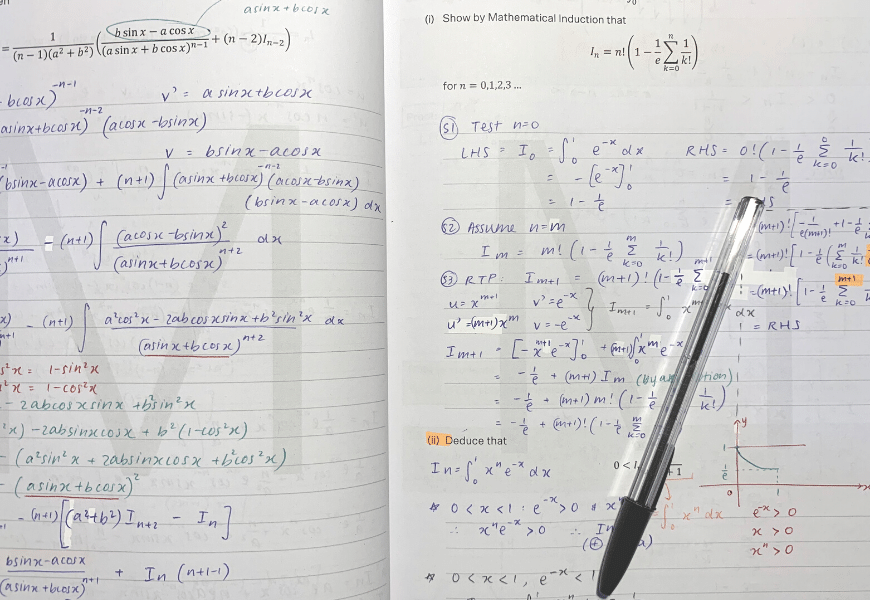 asinx+bcosx
= 1/((n−1)(a² + b²)) ( (b sin x − a cos x)/((a sin x + b cos x)ⁿ⁻¹) + (n − 2)Iₙ₋₂ )
bcosx)⁻ⁿ⁻¹ v' = asinx+bcosx
asinx+bcosx)⁻ⁿ⁻² (acosx-bsinx)
v = bsinx-acosx
(bsinx-acosx) + (n+1) ∫ (asinx+bcosx)⁻ⁿ⁻² (acosx-bsinx)
(bsinx-acosx) dx
x)/ⁿ⁺¹ - (n+1) ∫ (acosx-bsinx)²/(asinx+bcosx)ⁿ⁺² dx
x)/ⁿ⁺¹ - (n+1) ∫ (a²cos²x - 2abcosxsinx + b²sin²x)/(asinx+bcosx)ⁿ⁺² dx
s²x = 1-sin²x
n²x = 1-cos²x
- 2abcosxsinx + b²sin²x
²x) - 2absinxcosx + b²(1-cos²x)
- (a²sin²x + 2absinxcosx + b²cos²x)
- (asinx+bcosx)²
- (n+1)[(a²+b²) Iₙ₊₂ - Iₙ]
(bsinx-acosx)/(asinx+bcosx)ⁿ⁺¹ + Iₙ(n+1-1)
(i) Show by Mathematical Induction that
Iₙ = n! (1 − 1/e ∑ₖ₌₀ⁿ 1/k!)
for n = 0,1,2,3 ...
S1 Test n=0
LHS = I₀ = ∫₀¹ e⁻ˣ dx RHS = 0! (1 - 1/e ∑ₖ₌₀⁰ 1/k!
= -[e⁻ˣ]₀¹ = 1 - 1/e
= 1 - 1/e =
S2 Assume n=m
Iₘ = m! (1 - 1/e ∑ₖ₌₀ᵐ 1/k!)
S3 RTP: Iₘ₊₁ = (m+1)! (1 - 1/e ∑ₖ₌₀ᵐ⁺¹
u = xᵐ⁺¹ v' = e⁻ˣ
u' = (m+1)xᵐ v = -e⁻ˣ
Iₘ₊₁ = ∫₀¹ dx
Iₘ₊₁ = [-xᵐ⁺¹e⁻ˣ]₀¹ + (m+1)∫₀¹ xᵐe⁻ˣ
= -1/e + (m+1) Iₘ (by
= -1/e + (m+1) m! (1 - 1/e 1/k!)
= -1/e + (m+1)! (1 - 1/e ∑ₖ₌₀ᵐ
(m+1)! [-1/(e(m+1)!) + 1 - 1/e
= (m+1)! [1 - 1/e (∑ₖ₌₀ᵐ 1/k!
= (m+1)! [1 - 1/e ∑ᵐ⁺¹
= RHS
(ii) Deduce that
0 <
Iₙ = ∫₀¹ xⁿe⁻ˣ dx
0 < x < 1 : e⁻ˣ > 0
∴ xⁿe⁻ˣ > 0 ∴ Iₙ
0 < x < 1, e⁻ˣ < 1
∫₀¹ xⁿ dx
y
1
1/e
0
1
x
e⁻ˣ > 0
x > 0
xⁿ > 0